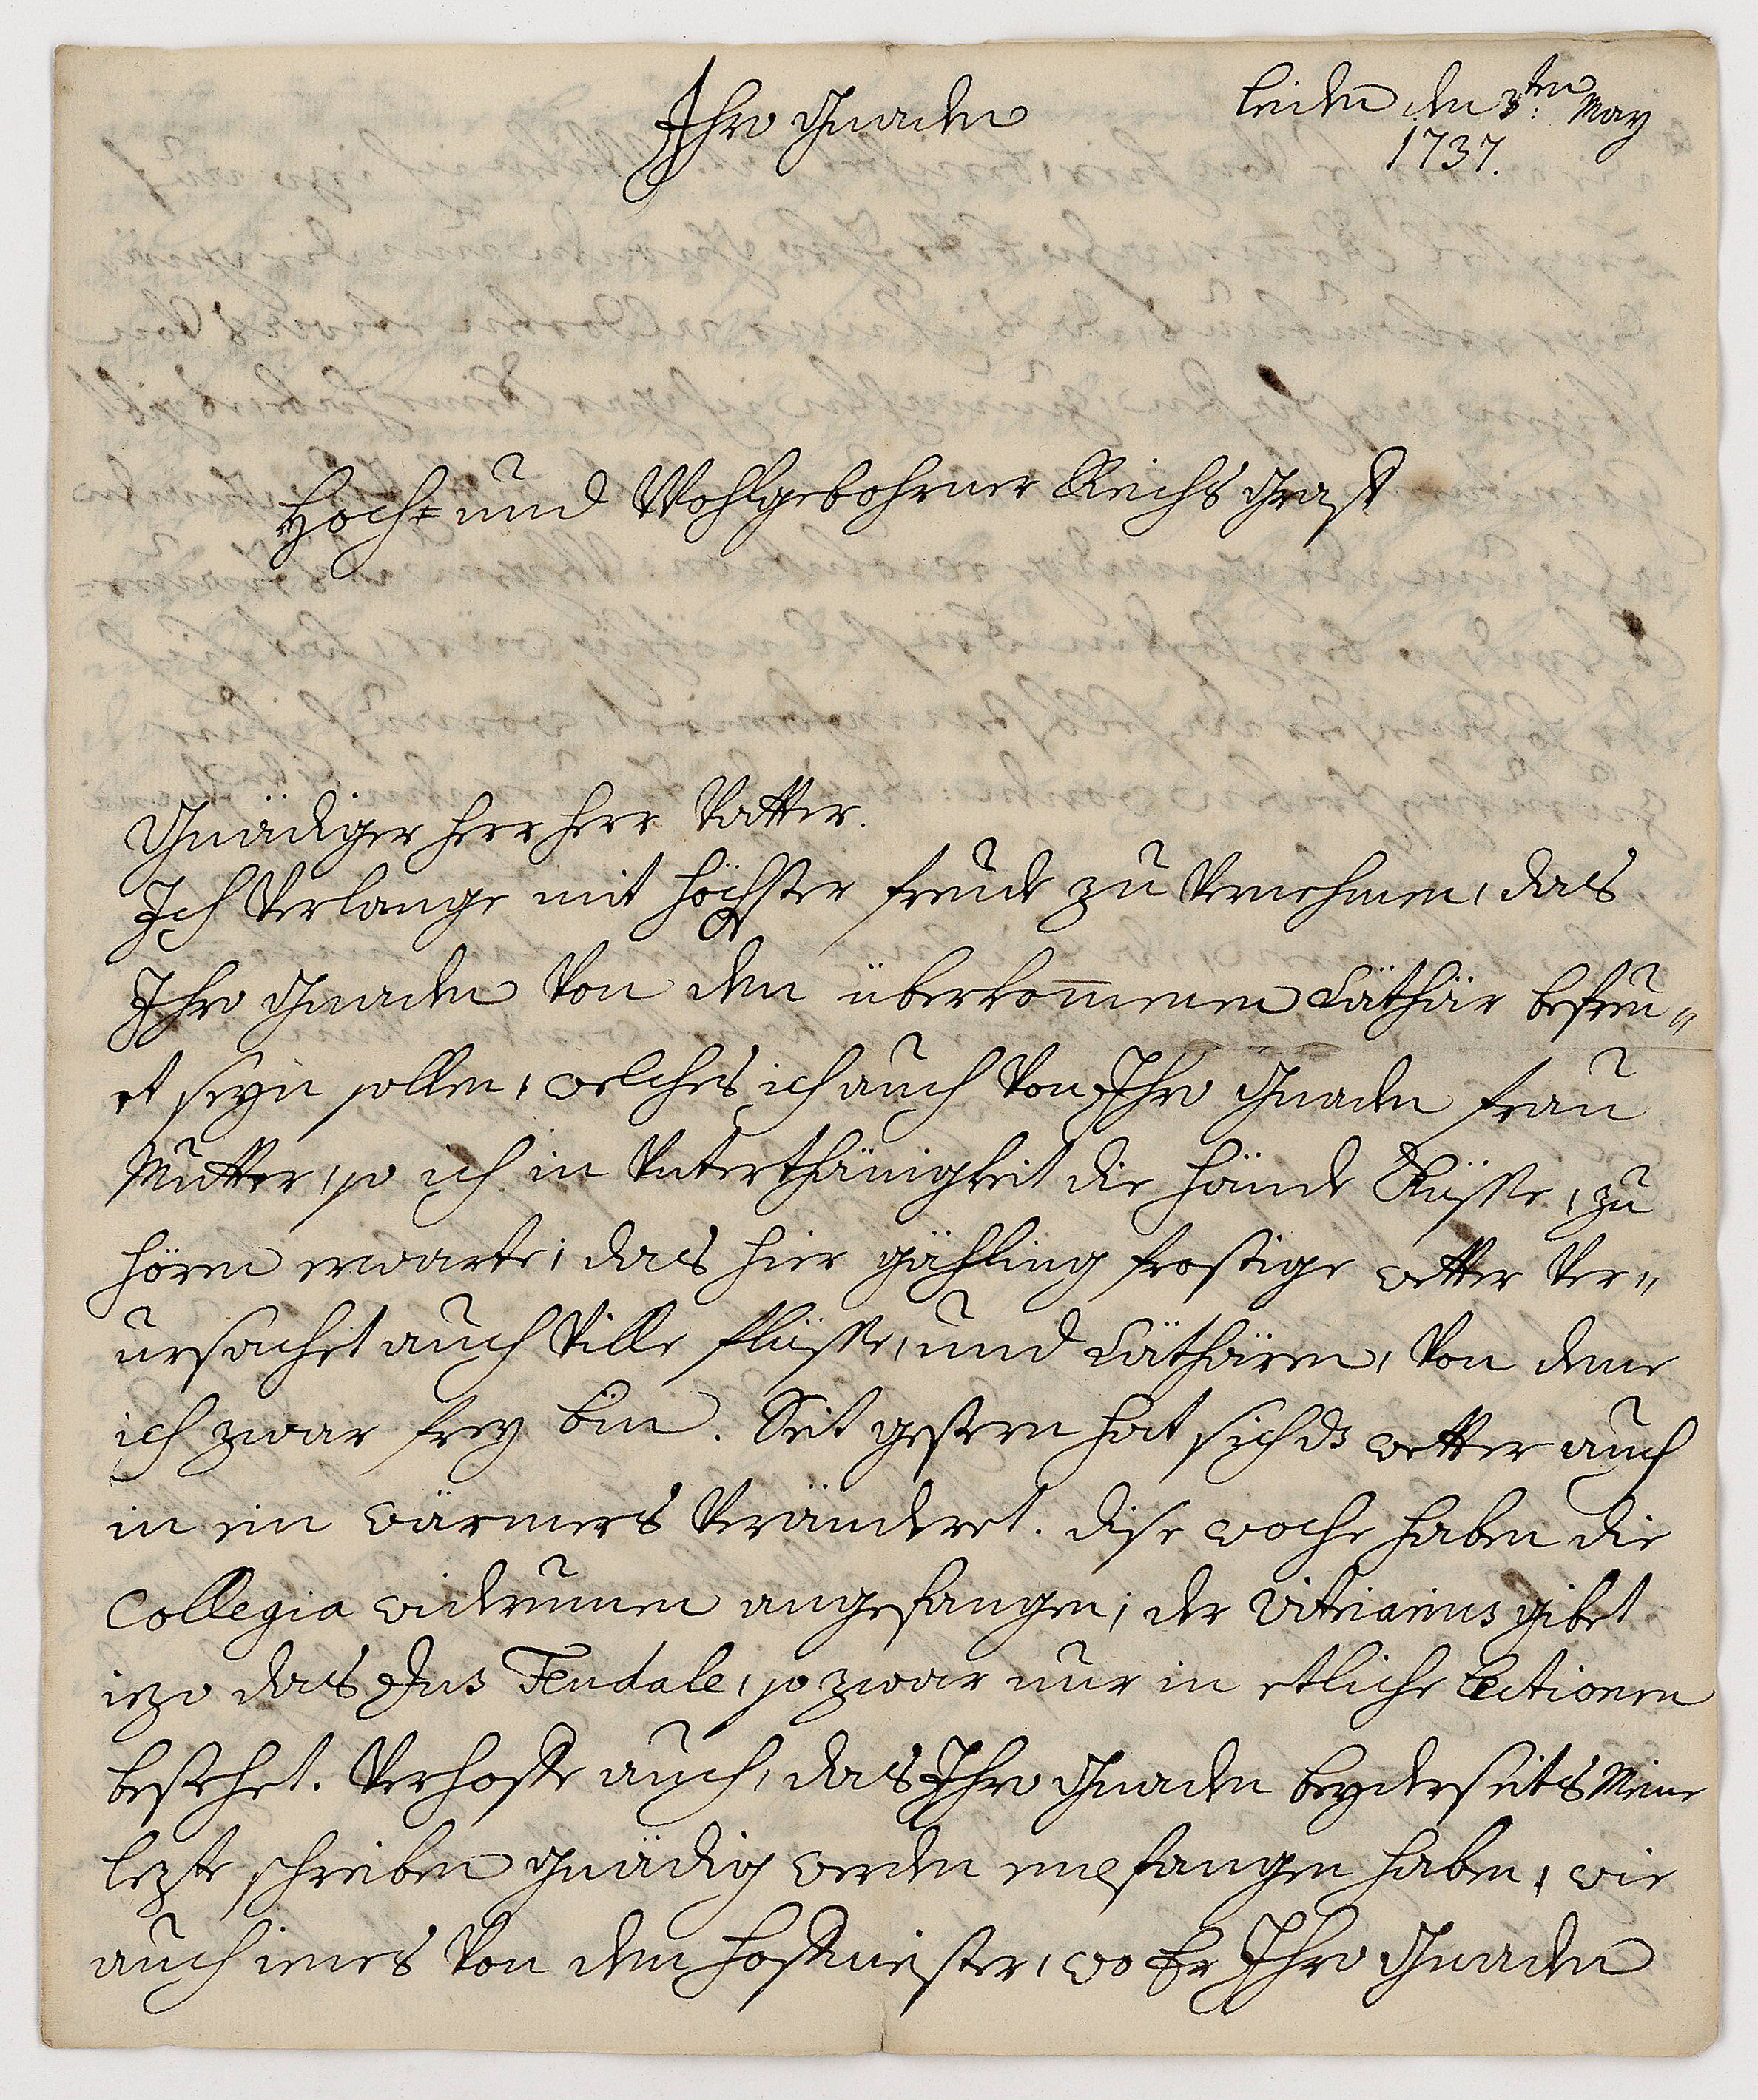 Leiden den 3ten: May
1737.
Ihro Gnaden
Hoch= und Wohlgebohrner Reichs Graff
Gnädiger Herr Herr Vatter.
Ich Verlange mit höchster freude zu Vernehmen, das
Ihro Gnaden Von den überkom̅enen Cäthär befreu„
et seyn sollen, welches ich auch Von Ihro Gnaden frau
Mutter, so ich in Unterthänigkeit die hände Küsse, zu
hören erwarte; das hier gähling frostige wetter Ver„
ursachet auch Ville flüsse, und Cäthären, Von dene
ich zwar frey bin. Seit gestern hat sich ds wetter auch
in ein wärmers Veränderet. dise woche haben die
Collegia widerumen angefangen; der Vitriarius gibet
iezo das Jus Feudale, so zwar nur in etliche Lectionen
bestehet. Verhoffe auch, das Ihro Gnaden beyderseits Meine
lezte schreiben gnädig werden empfangen haben, wie
auch ienes Von den hoffmeister, wo Er Ihro Gnaden